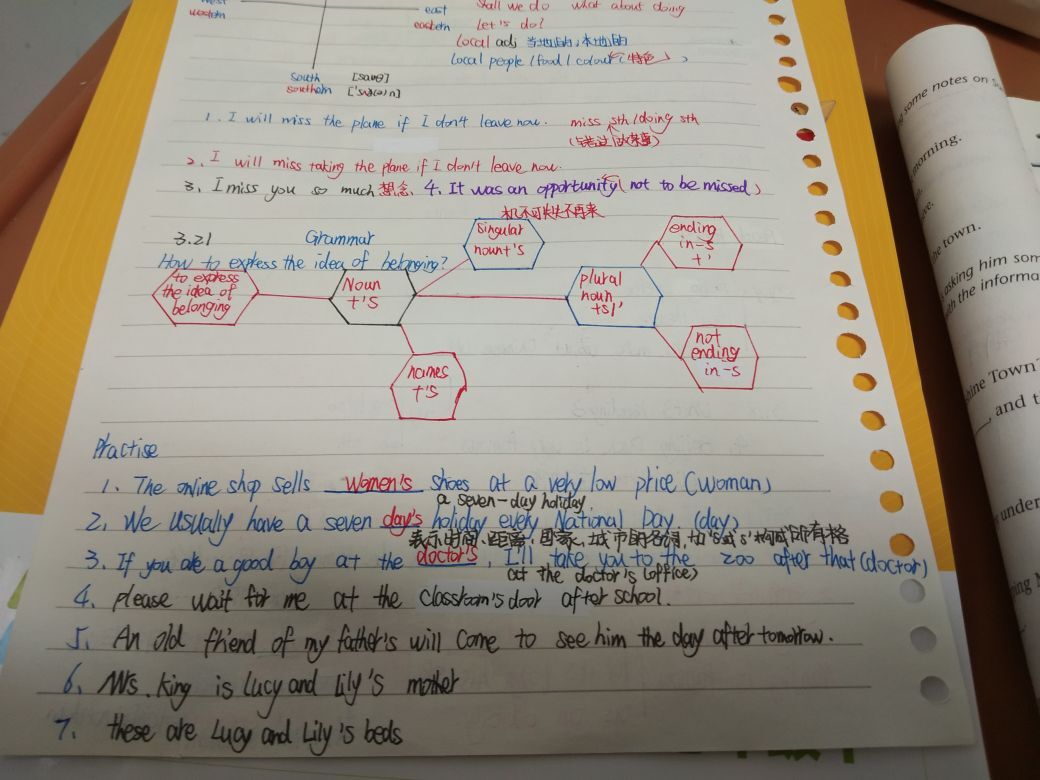 west east Shall we do what about doing
western eastern Let's do!
local adj 当地的,本地的
local people / food / colour (特色)
South [sauθ]
southern ['sʌðən]
1. I will miss the plane if I don't leave now. miss sth / doing sth
(错过)
2. I will miss taking the plane if I don't leave now.
3. I miss you so much 想念 4. It was an opportunity (not to be missed)
机不可失失不再来
3.21 Grammar
How to express the idea of belonging?
to express the idea of belonging
Noun +'s
singular noun+'s
names +'s
plural noun +s/'
ending in -s +'
not ending in -s
Practise
1. The online shop sells women's shoes at a very low price (woman)
a seven-day holiday
2. We usually have a seven day's holiday every National Day (day)
表示时间、距离、国家、城市的名词,加's或s'构成所有格
3. If you are a good boy at the doctor's, I'll take you to the zoo after that (doctor)
at the doctor's (office)
4. please wait for me at the classroom's door after school.
5. An old friend of my father's will come to see him the day after tomorrow.
6. Mrs. King is Lucy and Lily's mother
7. these are Lucy and Lily's beds
some notes on
morning.
the town.
asking him som
th the informa
hine Town
, and t
under
ing